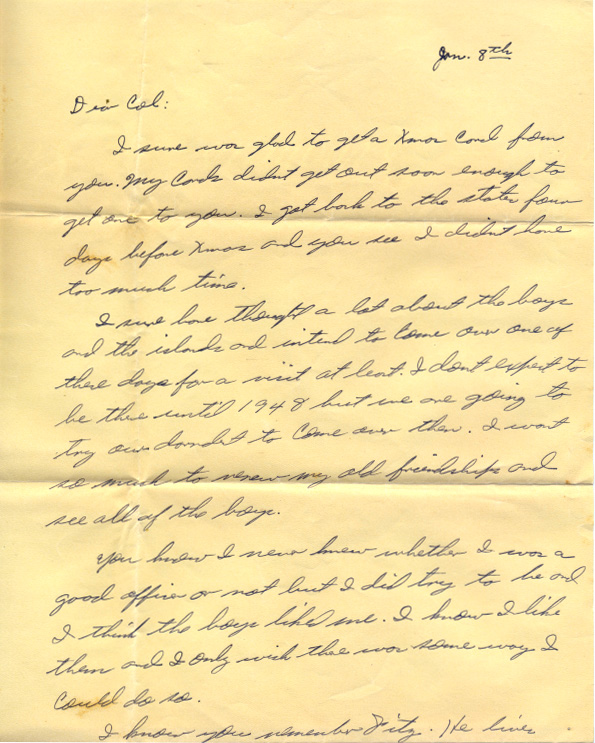 Jan. 8th
Dear Col:
I sure was glad to get a Xmas Card from
you. My Cards didnt get out soon enough to
get one to you. I got back to the states four
days before Xmas and you see I didnt have
too much time.
I sure have thought a lot about the boys
and the islands and intend to Come over one of
these days for a visit at least. I dont expect to
be there until 1948 but we are going to
try our darndest to Come over then. I want
so much to renew my old friendships and
see all of the boys.
You know I never knew whether I was a
good officer or not but I did try to be and
I think the boys liked me. I know I like
them and I only wish there was some way I
Could do so.
I know you remember Fitz. He lives